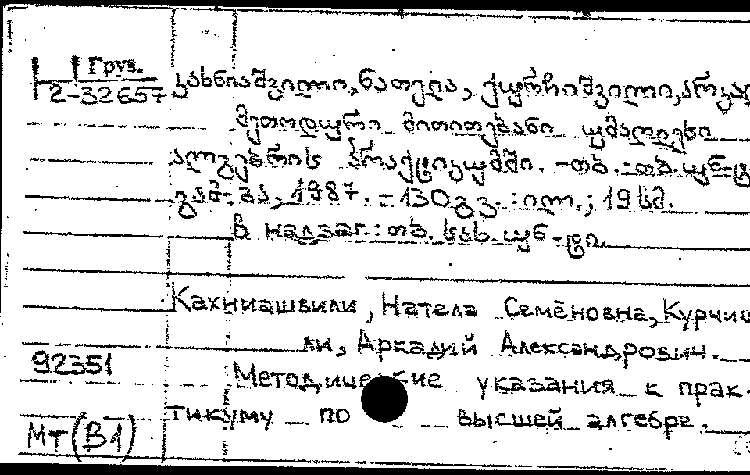 Груз.
2-32657 კახნიაშვილი, ნათელა, ქურჩიშვილი, არკად
მეთოდური მითითებანი უმაღლესი
ალგებრის პრაქტიკუმში. -თბ.: თბ. უნ-ტ
გამ-ბა, 1987. - 130 გვ. : ილ. ; 19 სმ.
В надзаг: თბ. სახ. უნ-ტი.
Кахниашвили, Натела Семёновна, Курчиш
ли, Аркадий Александрович.
92351
Методические указания к прак-
тикуму по высшей алгебре.
Мт(В1)